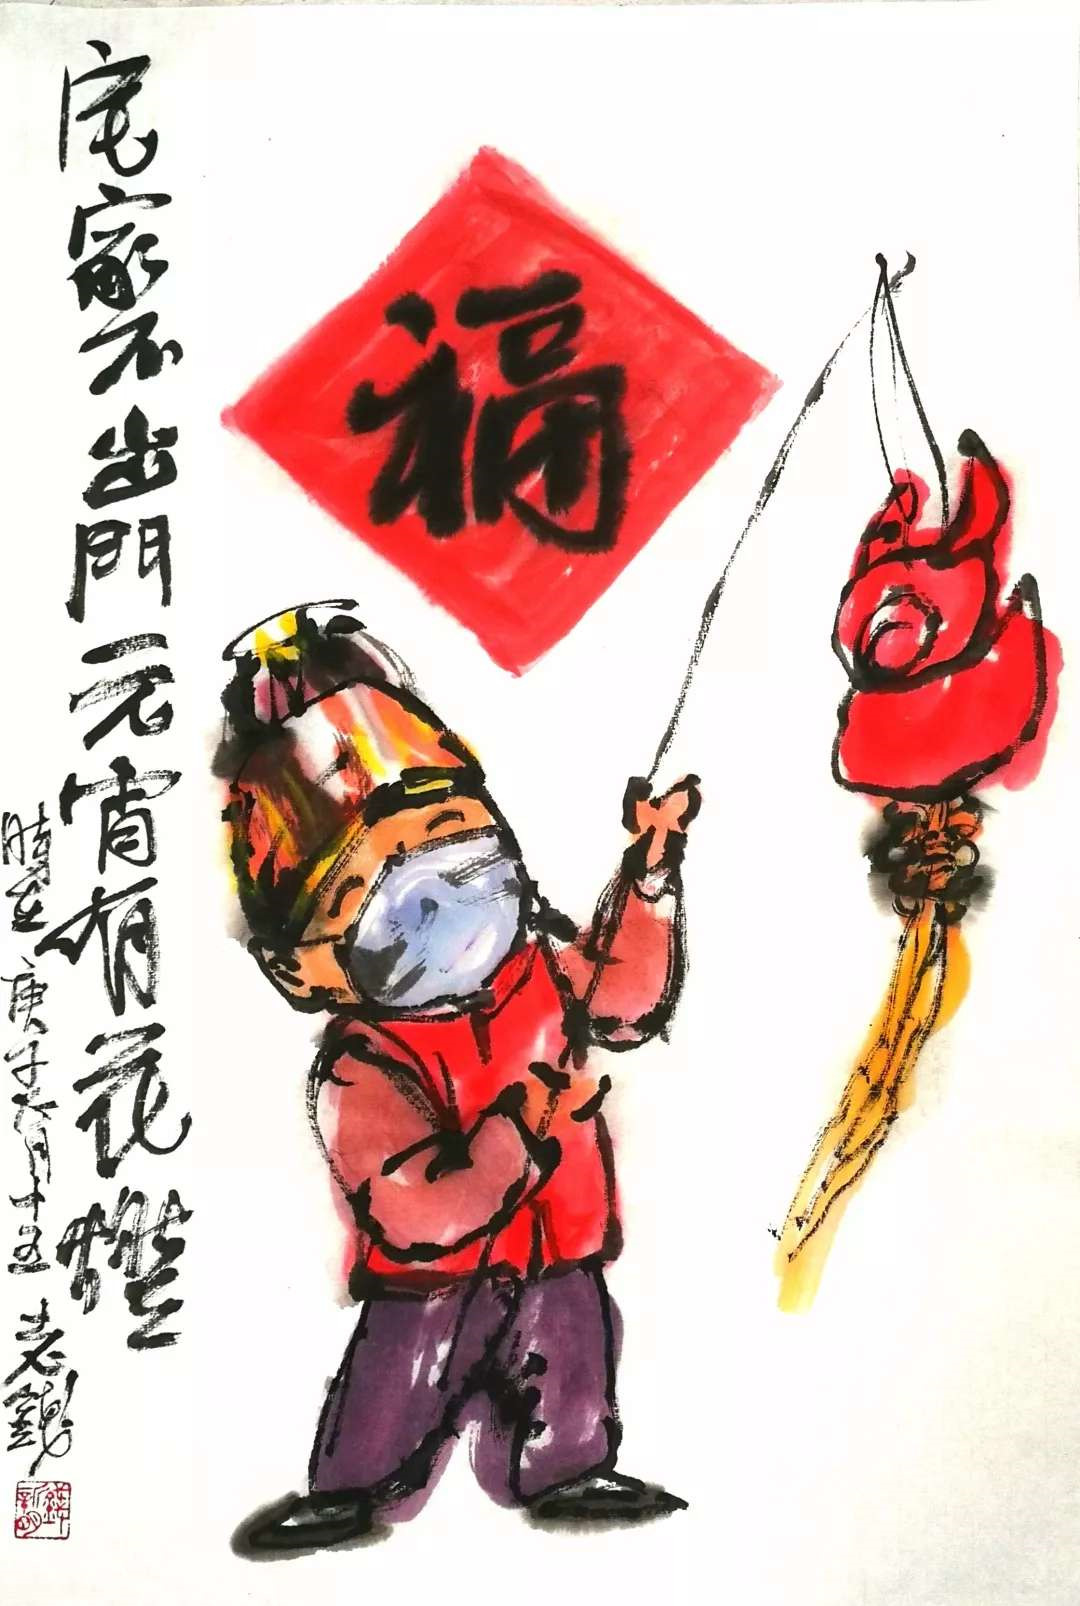 福
宅家不出門元宵有花燈
時在庚子正月十五